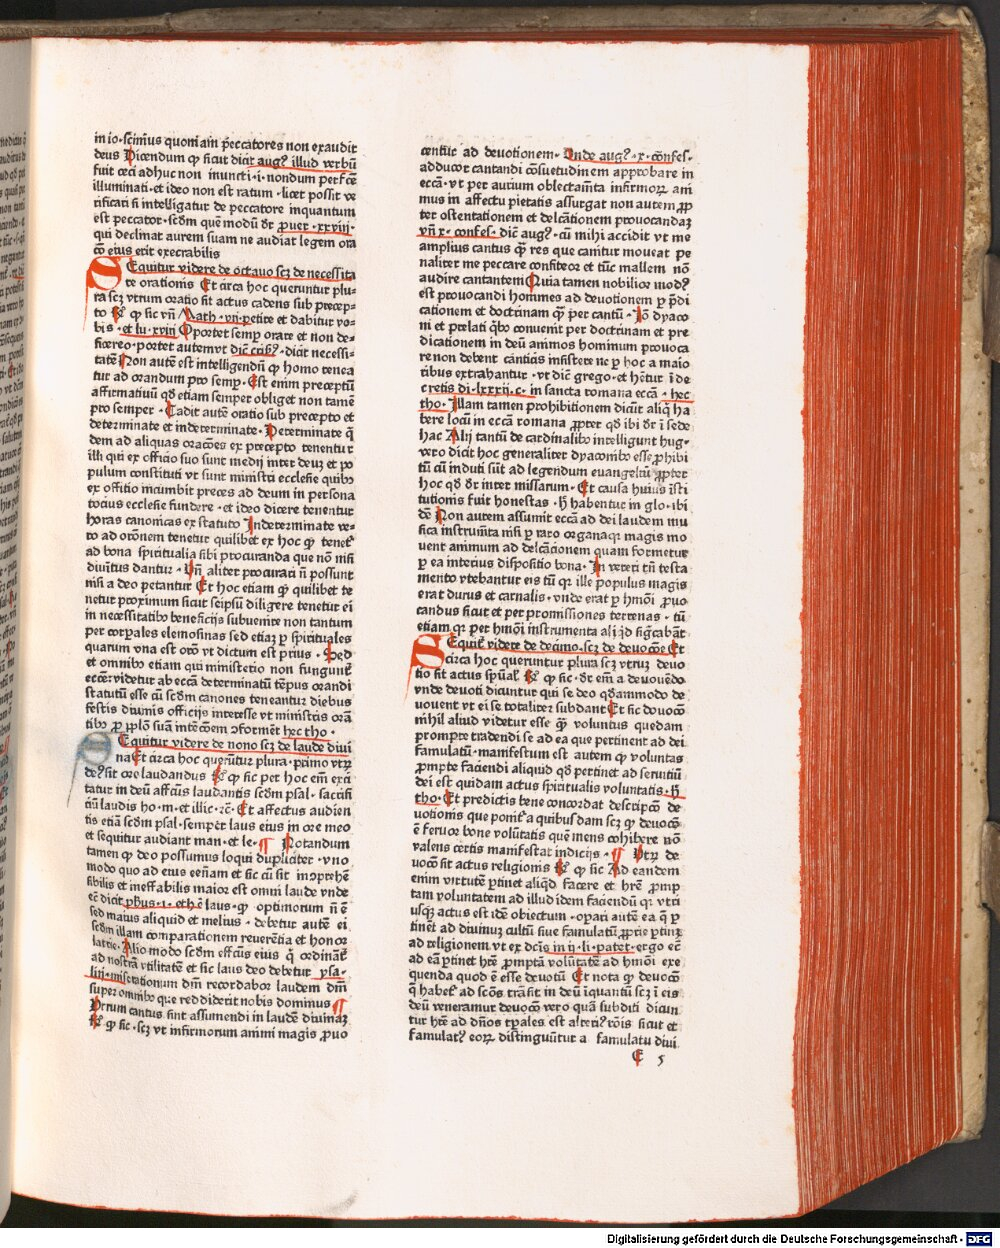 in io·scimus quoniam peccatores non exaudit
deus Dicendum ꝙ sicut dicit augꝰ illud verbū
fuit ceci adhuc non inuncti·i·nondum perfcē
illuminati·et ideo non est ratum·licet possit ve
rificari si intelligatur de peccatore inquantum
est peccator·scdm quē modū dr̄ prouer·xxviij·
qui declinat aurem suam ne audiat legem ora
co eius erit execrabilis
SEquitur videre de octauo scꝫ de necessita
te orationis Et circa hoc queruntur plu-
ra scꝫ vtrum oratio sit actus cadens sub precep-
to Rꝰ ꝙ sic vn̄ Math·vii·petite et dabitur vo-
bis·et lu·xviij Oportet semꝑ orare et non de-
ficere
tatē Non autē est intelligendū ꝙ homo tenea
tur ad orandum pro semꝑ·Est enim preceptū
affirmatiuū qd̄ etiam semper obliget non tamē
pro semper·Cadit autē oratio sub precepto et
determinate et indeterminate·Determinate q̄
dem ad aliquas oracōes ex precepto tenentur
illi qui ex officio suo sunt medij inter deuꝫ et po
pulum constituti vt sunt ministri ecclesie quibꝰ
ex offitio incumbit preces ad deum in persona
tocius ecclesie fundere·et ideo dicere tenentur
horas canonicas ex statuto Indeterminate ve-
ro ad orōnem tenetur quilibet ex hoc ꝙ tenet᷑
ad bona spiritualia sibi procuranda que nō nisi
diuītus dantur·Vn̄ aliter procurari n̄ possunt
nisi a deo petantur Et hoc etiam ꝙ quilibet te
netur proximum sicut seipsū diligere tenetur ei
in necessitatibꝰ beneficijs subuenire non tantum
per corꝑales elemosinas sed etiaꝫ ꝑ spirituales
quarum vna est orō vt dictum est prius·Sed
et omnibꝰ etiam qui ministerio non fungunt᷑
videtur ab eccā determinatū tēpus orandi
statutū esse cū scdm canones teneantur diebus
festis diuinis officijs interesse vt ministris orā
tibꝰ ꝓ pplo suā intēcōem ꝯformēt hec tho·
SEquitur videre de nono scꝫ de laude diui
na Et circa hoc querūtur plura·primo vtꝝ
deꝰ sit ore laudandus Rꝰ ꝙ sic per hoc em̄ exci
tatur in deū affcūs laudantis scdm psal·sacrifi
ciū laudis ho·m·et illic·ꝛc̄·Et affectus audien
tis etiā scdm psal·semper laus eius in ore meo
et sequitur audiant man·et le·¶ Notandum
tamen ꝙ deo possumus loqui dupliciter·vno
modo quo ad eius eēnam et sic cū sit inꝯprehē
sibilis et ineffabilis maior est omni laude vnde
ec̄ dicit pħus·i·ethē laus·ꝙ optimorum n̄ ē
sed maius aliquid et melius·debetur autē ei
scdm illam comparationem reuerētia et honor
latrie·Alio modo scdm effcūs eius q̄ ordinat᷑
ad nostrā vtilitatē et sic laus deo debetur ysa-
liij·miserationum dn̄i recordabor laudem dn̄i
super omnibꝰ que reddiderit nobis dominus ¶
Vtrum cantus sint assumendi in laudē diuinaꝫ
Rꝰ ꝙ sic·scꝫ vt infirmorum animi magis ꝓuo
centur ad deuotionem·Vnde augꝰ·x·cōfes·
adducor cantandi cōsuetudinem approbare in
eccā·vt per aurium oblectamīta infirmoꝝ ani
mus in affectu pietatis assurgat non autem ꝓp
ter ostentationem et delcātionem prouocandaꝫ
vn̄ x·confes·dic̄ augꝰ·cū mihi accidit vt me
amplius cantus ꝙ res que canitur moueat pe
naliter me peccare confiteor et tūc mallem nō
audire cantantem Quia tamen nobilior modꝰ
est prouocandi hommes ad deuotionem ꝑ p̄di
cationem et doctrinam ꝙ per cantū·Iō dyaco
ni et prelati qibꝰ conuenit per doctrinam et pre
dicationem in deū animos hominum prouoca
re non debent canticis insistere ne ꝑ hoc a maio
ribus extrahantur·vt dic̄ grego·et hētur ī de
cretis di·lxxxij·c·in sancta romana eccā·hec
tho·Illam tamen prohibitionem dicūt aliqi ha
bere locū in eccā romana ꝓpter qd̄ ibi dr̄ ī sede
hac Alij tantū de cardinalibꝰ intelligunt hug·
vero dicit hoc generaliter dyaconibꝰ esse ꝓhibi
tū cū induti sūt ad legendum euangeliū ꝓpter
hoc qd̄ dr̄ inter missarum·Et causa huius īsti
tutionis fuit honestas·h̄ habentur in glo·ibi
dē Non autem assumit eccā ad dei laudem mu
sica instrumīta nisi ꝑ raro organaqꝫ magis mo
uent animum ad delcātionem quam formetur
ꝑ ea interius dispositio bona·In veteri tn̄ testa
mento vtebantur eis tū qꝛ ille populus magis
erat durus et carnalis·vnde erat ꝑ hmōi ꝓuo
candus sicut et per promissiones terrenas·tū
etiam qꝛ per hmōi instrumenta aliqd figͥcabāt᷑
SEquit᷑ videre de decimo·scꝫ de deuocōe Et
circa hoc queruntur plura scꝫ vtruꝫ deuo
tio sit actus spūal᷑ Rꝰ ꝙ sic·dr̄ em̄ a deuouēdo
vnde deuoti dicuntur qui se deo qd̄ammodo de
uouent vt ei se totaliter subdant Et sic deuocō
nihil aliud videtur esse ꝙ voluntus quedam
prompte tradendi se ad ea que pertinent ad dei
famulatū·manifestum est autem ꝙ voluntas
ꝓmpte faciendi aliquid qd̄ pertinet ad seruitiū
dei est quidam actus spiritualis voluntatis·h̄
tho·Et predictis bene concordat descripcō de
uotionis que ponit᷑ a quibusdam scꝫ ꝙ deuocō
ē feruor bone volūtatis quē mens cohibere nō
valens certis manifestat indicijs·¶ Vtꝝ de
uocō sit actus religionis Rꝰ ꝙ sic Ad eandem
enim virtutem ꝑtinet aliqd facere et hrē ꝓmp
tam voluntatem ad illud idem faciendū qꝛ vtri
usqꝫ actus est idē obiectum·oꝑari autē ea q̄ ꝑ
tinēt ad diuinuꝫ cultū siue famulatū ꝓprie ꝑtinꝫ
ad religionem vt ex dcīs in ij·li·patet·ergo ec̄
ad eā ꝑtinet hrē ꝓmptā volūtatē ad hmōi exe
quenda quod ē esse deuotū Et nota ꝙ deuocō
q̄ habet᷑ ad scōs trāsit in deū īquantū scꝫ ī eis
deū veneramur deuocō vero quā subditi dicun
tur hrē ad dn̄os tꝑales est alteriꝰ rōis sicut et
famulatꝰ eoꝝ distinguūtur a famulatu diui
C 5
Digitalisierung gefördert durch die Deutsche Forschungsgemeinschaft - DFG